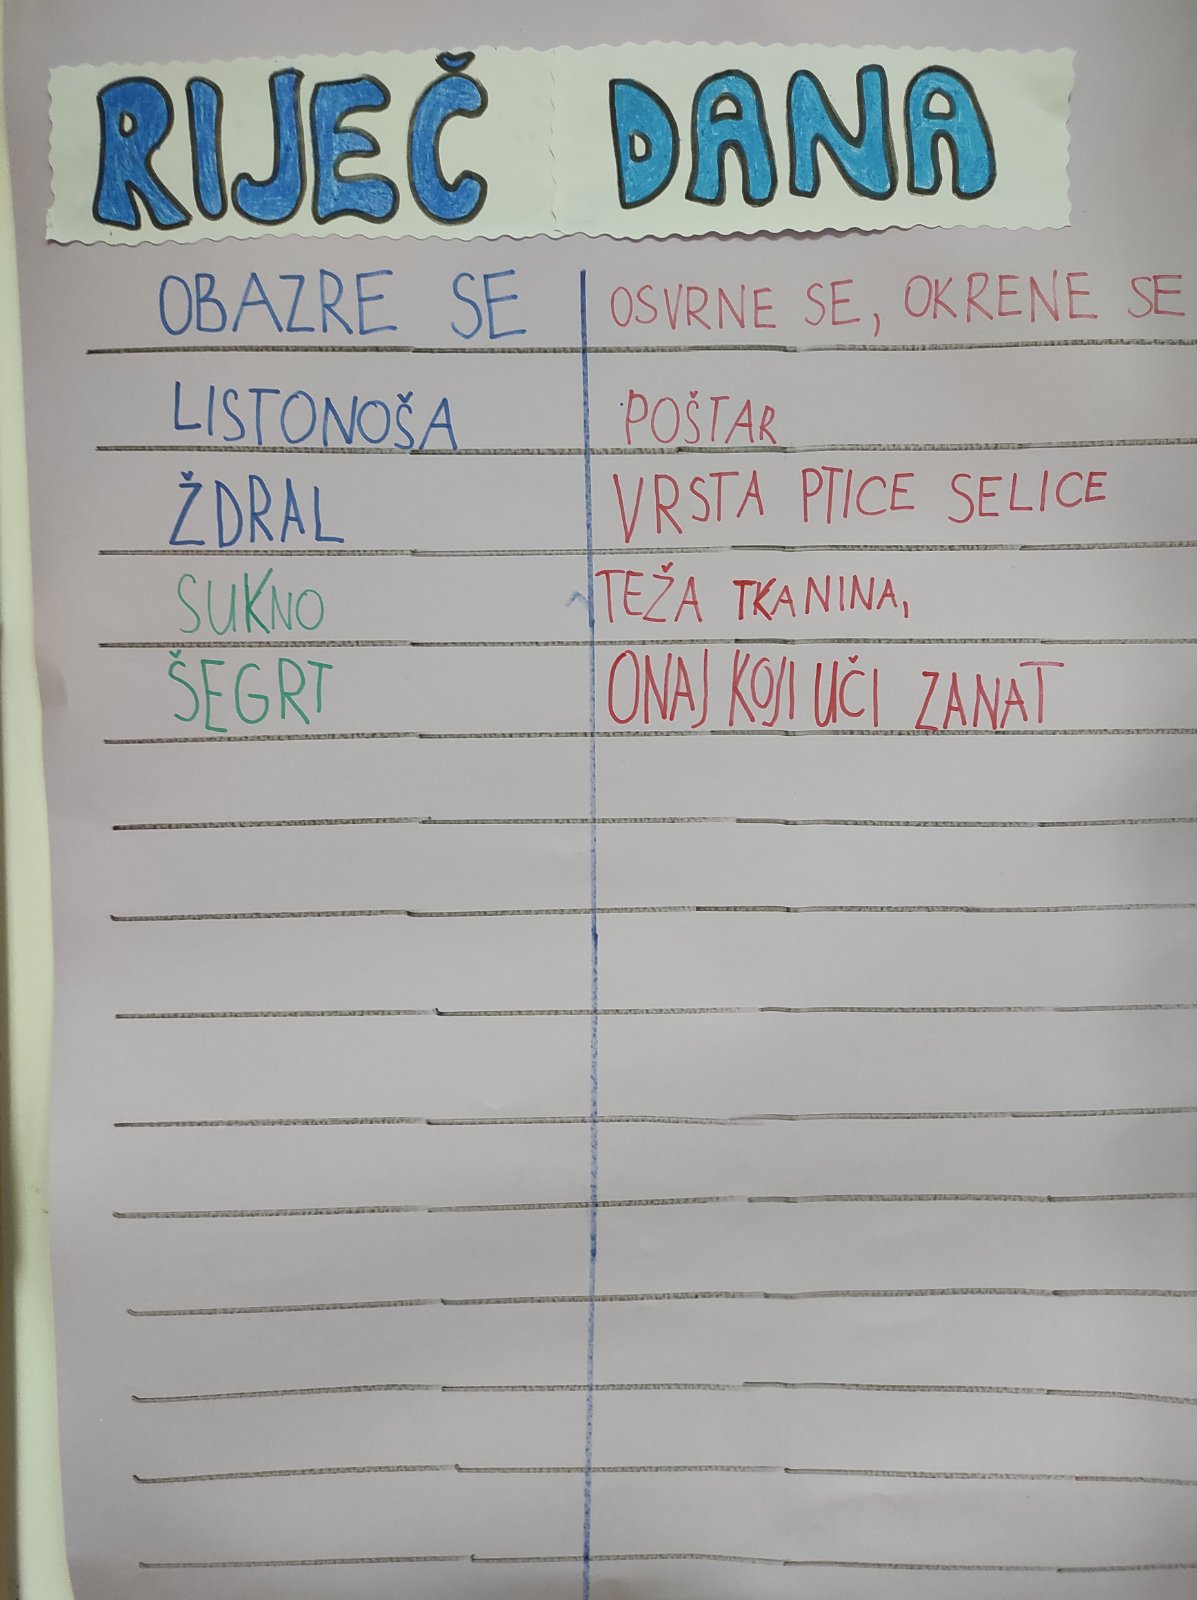 RIJEČ DANA
OBAZRE SE OSVRNE SE, OKRENE SE
LISTONOŠA POŠTAR
ŽDRAL VRSTA PTICE SELICE
SUKNO TEŽA TKANINA,
ŠEGRT ONAJ KOJI UČI ZANAT